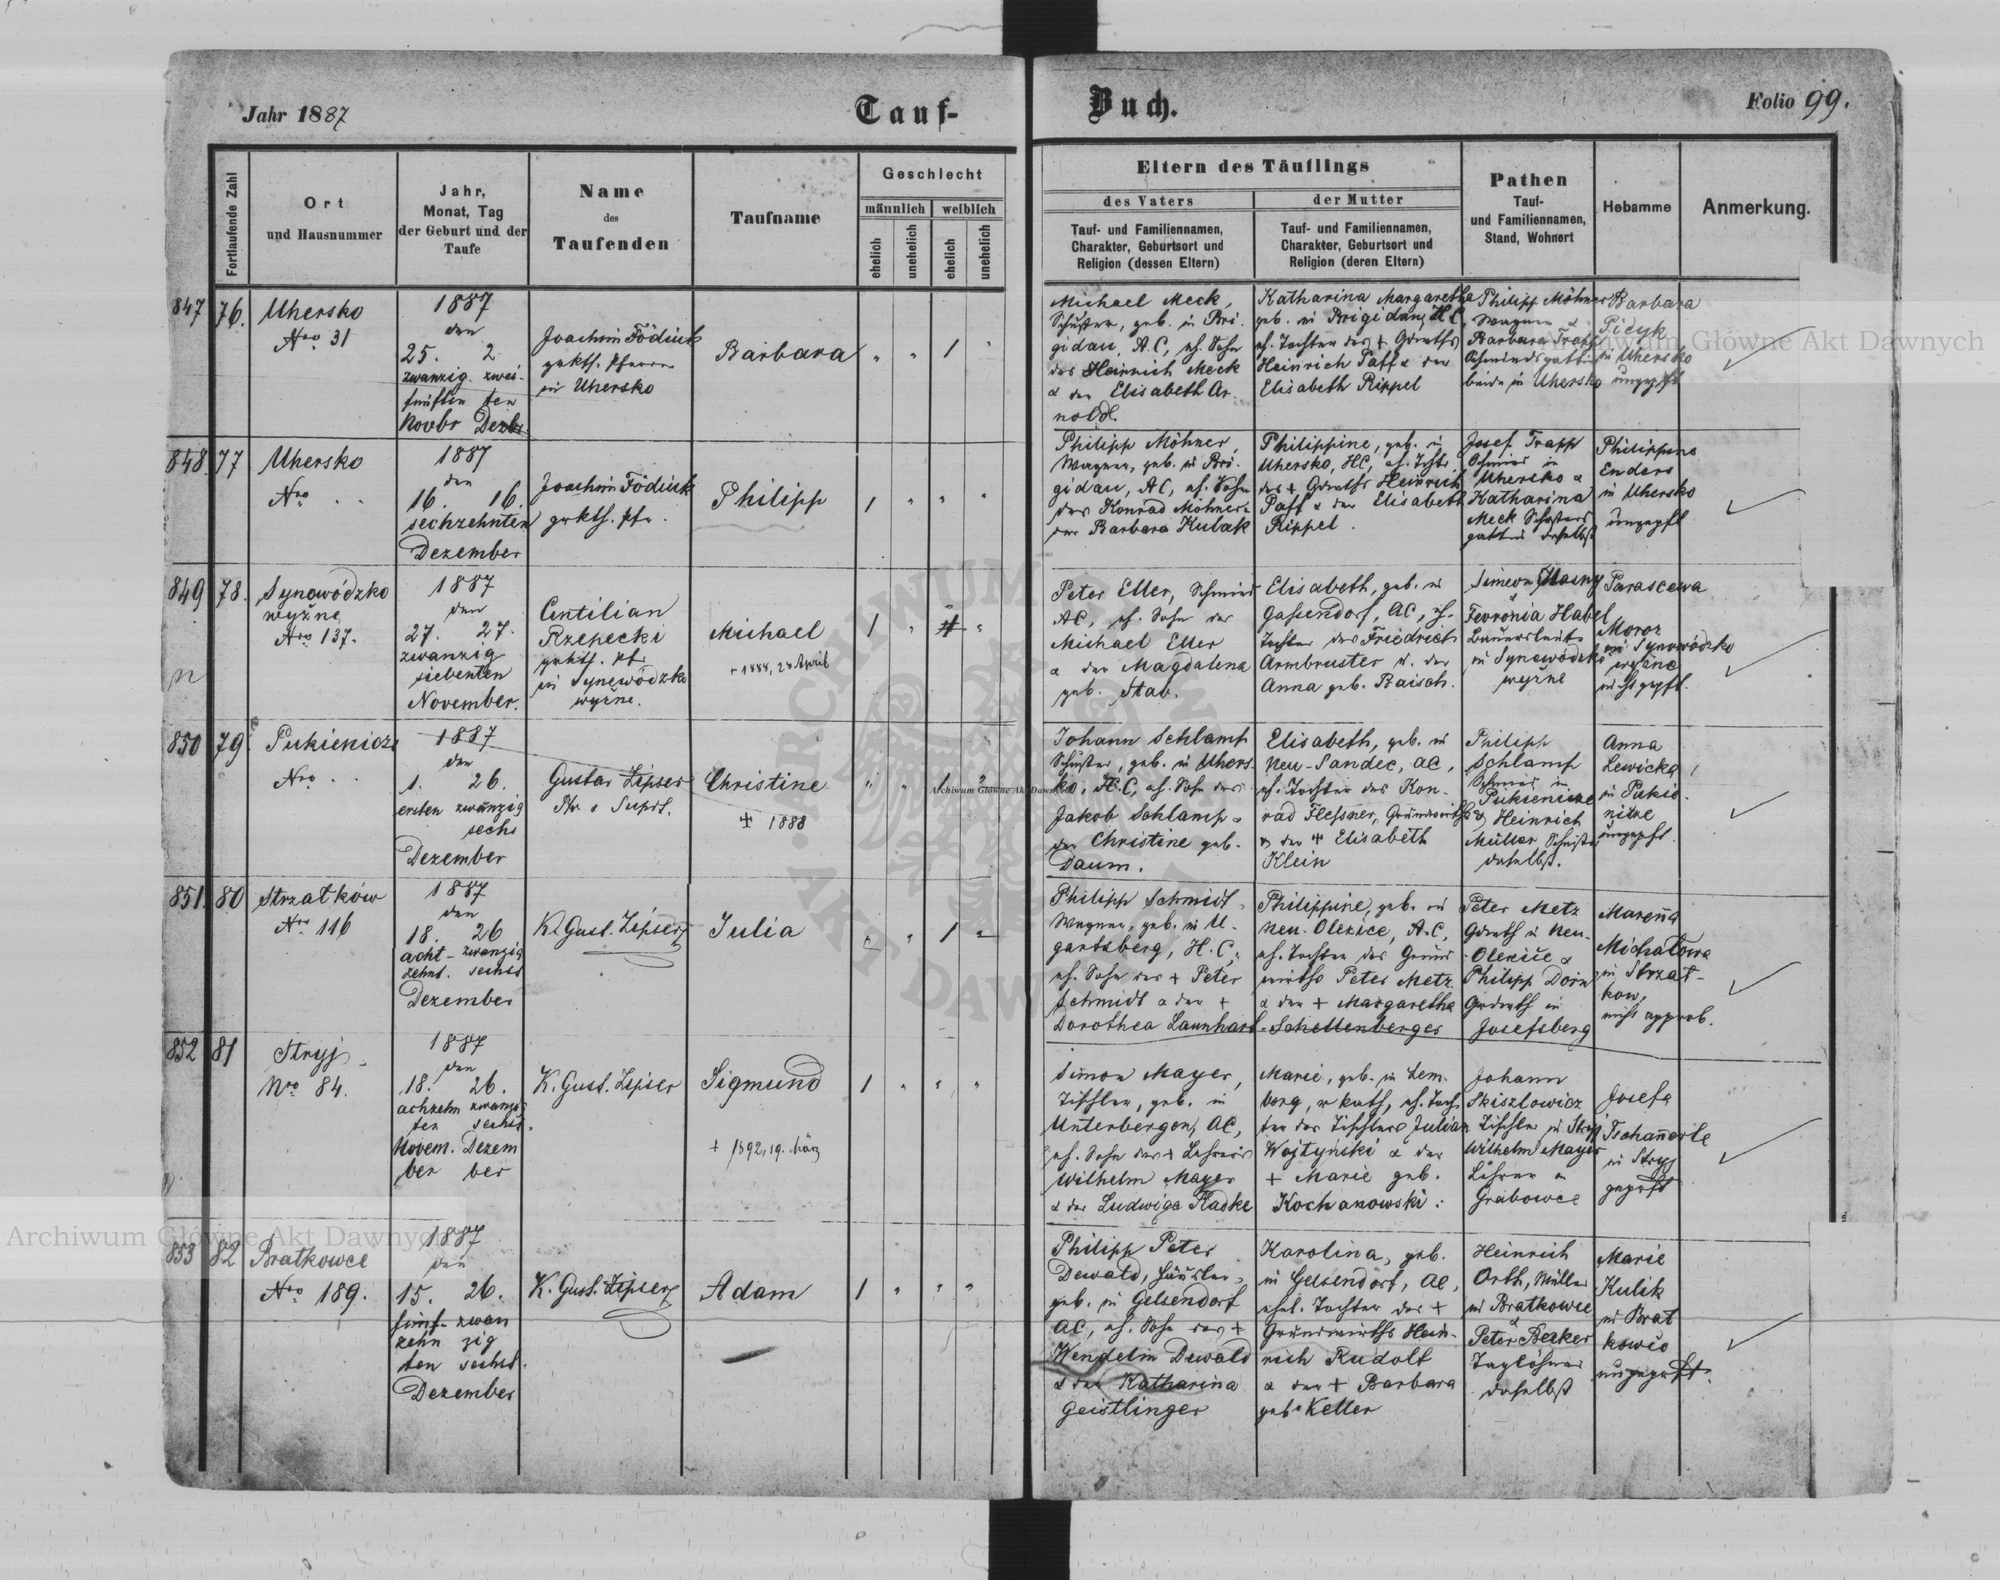 Jahr 1887
Tauf-
Buch.
Folio 99.
Fortlaufende Zahl
Ort
und Hausnummer
Jahr,
Monat, Tag
der Geburt und der
Taufe
Name
des
Taufenden
Taufname
Geschlecht
männlich
weiblich
ehelich
unehelich
ehelich
unehelich
Eltern des Täuflings
des Vaters
der Mutter
Tauf- und Familiennamen,
Charakter, Geburtsort und
Religion (dessen Eltern)
Tauf- und Familiennamen,
Charakter, Geburtsort und
Religion (deren Eltern)
Pathen
Tauf-
und Familiennamen,
Stand, Wohnort
Hebamme
Anmerkung.
847
76.
Uhersko
Nro 31
1887
den
25. 2
zwanzig- zwei-
fünften ten
Novbr Dezbr.
Joachim Födiuk
grkth. Pfarrer
in Uhersko
Barbara
1
Michael Meck,
Schuster, geb. in Bri-
gidau, A.C, eh. Sohn
des Heinrich Meck
& der Elisabeth Ar-
nold.
Katharina Margaretha
geb. in Brigidau, H.C,
eh. Tochter des + Grdwirths
Heinrich Paff & der
Elisabeth Rippel
Philipp Möhner
Wagner &
Barbara Trapp
Schmiedsgattin
beide in Uhersko
Barbara
Picyk
in Uhersko
ungepft
848.
77
Uhersko
Nro . .
1887
den
16. 16.
sechzehnten
Dezember
Joachim Födiuk
grkth. Pfr.
Philipp
1
Philipp Möhner,
Wagner, geb. in Bri-
gidau, AC, eh. Sohn
des Konrad Möhner &
der Barbara Kubak
Philippine, geb. in
Uhersko, HC, eh. Tochter
des + Grdwirths Heinrich
Paff & der Elisabeth
Rippel.
Josef Trapp
Schmied in
Uhersko &
Katharina
Meck Schusters
gattin daselbst
Philippine
Enders
in Uhersko
ungepft
849
78.
Synowódzko
wyžne
Nro 137.
1887
den
27. 27.
zwanzig
siebenten
November.
Rzepecki
grkth. Pfr.
in Synowódzko
wyžne.
Michael
+ 1888, 28 April
1
Peter Eller, Schmied
AC, eh. Sohn des
Michael Eller
& der Magdalena
geb. Stab.
Elisabeth, geb. in
Gassendorf, AC, eh.
Tochter des Friedrich
Armbruster u. der
Anna geb. Baisch.
Simeon
&
Fevronia Habel
Bauersleute
in Synowódzko
wyžne
Parascewa
Moroz
in Synowódzko
wyžne
nicht gepft.
850
79.
Pukienicze
Nro . .
1887
den
1. 26.
ersten zwanzig
sechs
Dezember
Gustav Zipser
Pfr. & Suprt.
Christine
+ 1888
1
Johann Schlamp
Schuster, geb. in Uhers-
ko, H.C, eh. Sohn des
Jakob Schlamp &
der Christine geb.
Daum.
Elisabeth, geb. in
Neu-Sandec, AC,
eh. Tochter des Kon-
rad Flessner, Grundwirths
& der + Elisabeth
Klein
Philipp
Schlamp
Schmied in
Pukienicze
& Heinrich
Müller Schuster
daselbst.
Anna
Lewicka,
in Pukie-
nitze
ungepft.
851.
80
Strzatków
Nro 116
1887
den
18. 26
acht- zwanzig
zehnt. sechst
Dezember
K. Gust. Zipser
Julia
1
Philipp Schmidt,
Wagner, geb. in U-
gartsberg, H.C.,
eh. Sohn des + Peter
Schmidt & der +
Dorothea Launhard
Philippine, geb. in
Neu-Olexice, A.C,
eh. Tochter des Grund
wirths Peter Metz
& der + Margaretha
Schellenberger
Peter Metz
Grdwth in Neu-
Olexice &
Philipp Dorn
Grdwrth in
Josefsberg
Marenna
Michalowa
in Strzat-
kow,
nicht approb.
852
81
Stryj
Nro 84.
1887
den
18. 26.
achzehn zwanzig
ten sechst.
Novem. Dezem
ber ber
K. Gust. Zipser
Sigmund
+ 1892, 19. März
1
Simon Mayer,
Tischler, geb. in
Unterbergen, AC,
eh. Sohn des + Lehrers
Wilhelm Mayer
& der Ludwiga Radke
Marie, geb. in Lem-
berg, r kath, eh. Toch-
ter des Tischlers Julian
Wojtyński & der
+ Marie geb.
Kochanowski.
Johann
Skiszlowicz
Tischler in Stryj
Wilhelm Mayer
Lehrer in
Grabowce
Josefa
Tschannerle
in Stryj
gepft
853
82
Bratkowce
Nro 189.
1887
den
15. 26.
fünf- zwan
zehn zig
ten sechst.
Dezember
K. Gust. Zipser
Adam
1
Philipp Peter
Dewald, Häusler,
geb. in Gelsendorf
AC, eh. Sohn des +
Wendelin Dewald
& der Katharina
Geistlinger
Karolina, geb.
in Gelsendorf, AC,
ehel. Tochter des +
Grundwirths Hein-
rich Rudolf
& der + Barbara
geb. Keller
Heinrich
Orth, Müller
in Bratkowce
&
Peter Becker
Taglöhner
daselbst
Marie
Kulik
in Brat
kowce
ungepft.
Archiwum Główne Akt Dawnych
Archiwum Główne Akt Dawnych
Archiwum Główne Akt Dawnych